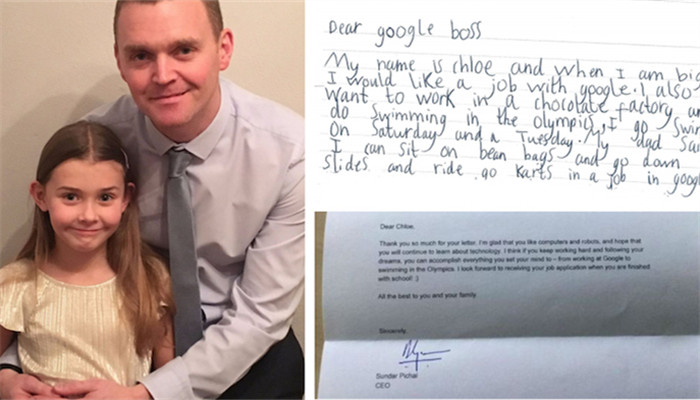 Dear google boss
My name is chloe and when I am big
I would like a job with google. I also
want to work in a chocolate factory an
do swimming in the olympics. I go swim
On Saturday and a Tuesday. My dad sai
I can sit on bean bags and go down
slides and ride go karts in a job in goog
Dear Chloe,
Thank you so much for your letter. I'm glad that you like computers and robots, and hope that
you will continue to learn about technology. I think if you keep working hard and following your
dreams, you can accomplish everything you set your mind to - from working at Google to
swimming in the Olympics. I look forward to receiving your job application when you are finished
with school! :)
All the best to you and your family.
Sincerely,
Sundar Pichai
CEO